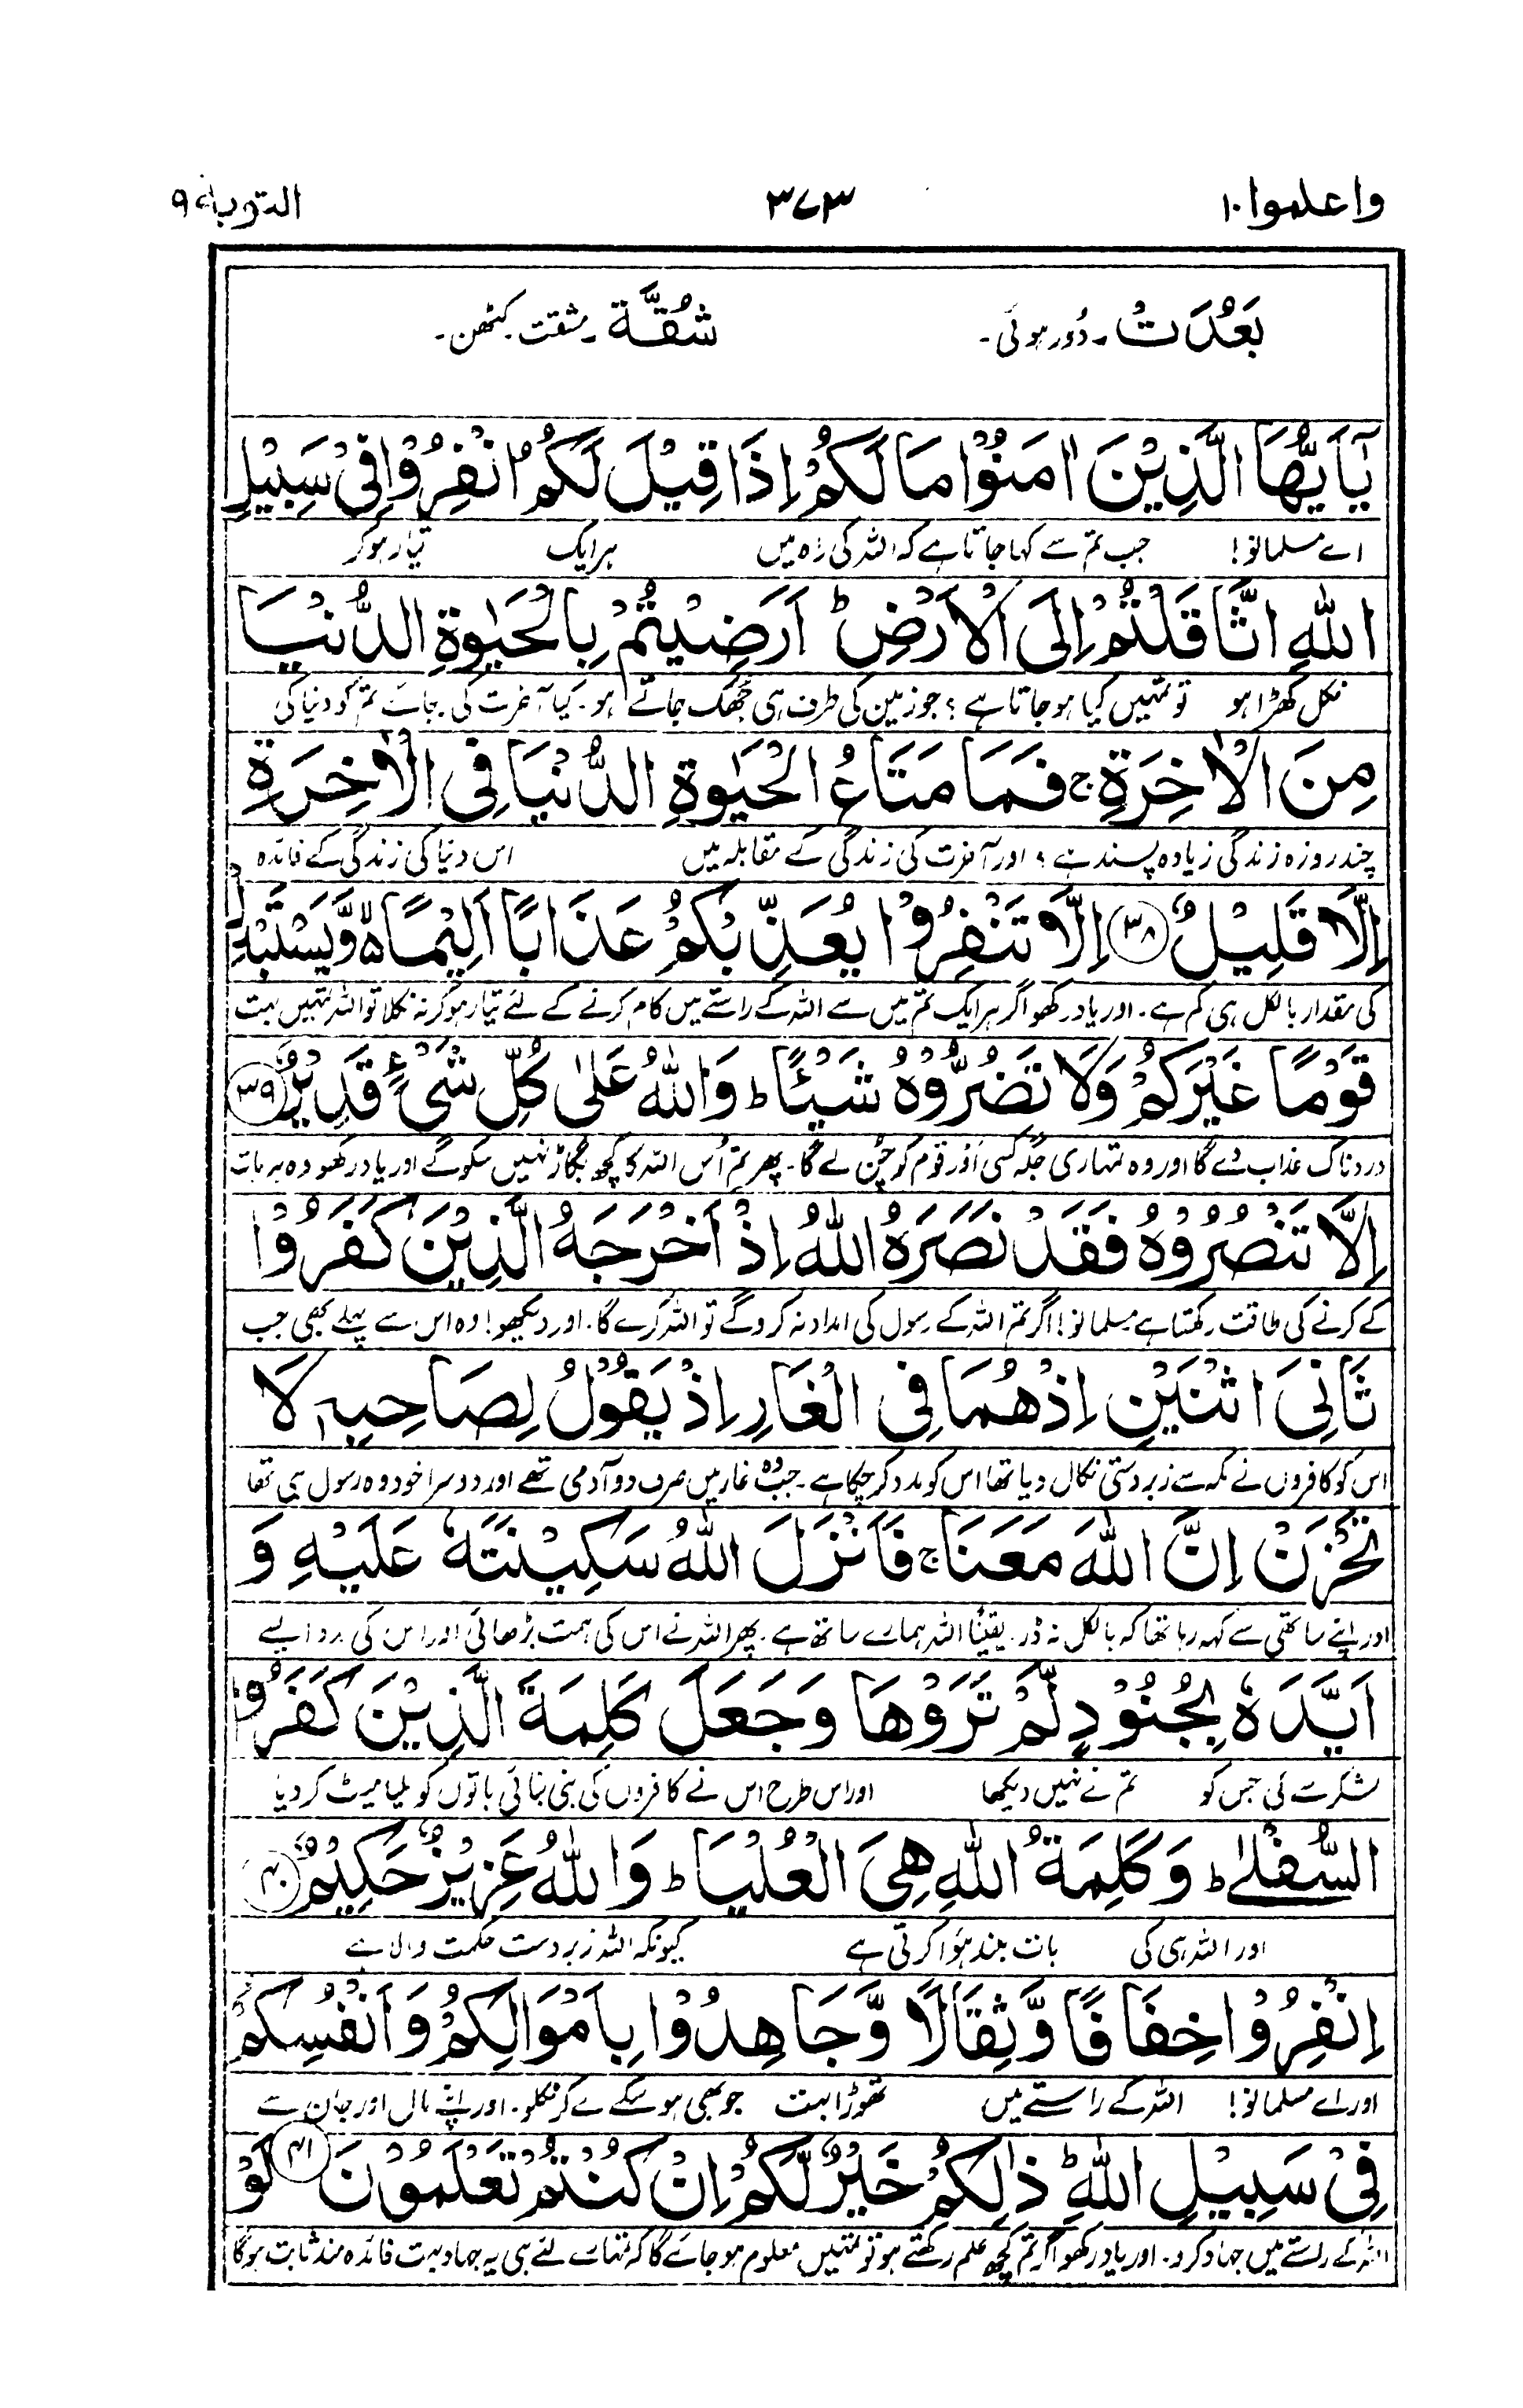 واعلموا ١٠ ٣٧٣ التوبة ٩
بَعُدَتْ ۔ دُور ہوئی ۔ شُقَّة ۔ مشقت ۔ کٹھن ۔
يٰٓاَيُّهَا الَّذِيْنَ اٰمَنُوْا مَا لَكُمْ اِذَا قِيْلَ لَكُمُ انْفِرُوْا فِيْ سَبِيْلِ
اے مسلمانو! جب تم سے کہا جاتا ہے کہ اللہ کی راہ میں ہر ایک تیار ہو کر
اللهِ اثَّاقَلْتُمْ اِلَى الْاَرْضِ ؕ اَرَضِيْتُمْ بِالْحَيٰوةِ الدُّنْيَا
نکل کھڑا ہو تو تمہیں کیا ہو جاتا ہے ؟ جو زمین کی طرف ہی جُھک جاتے ہو۔ کیا آخرت کی بجائے تم کو دنیا کی
مِنَ الْاٰخِرَةِ ۚ فَمَا مَتَاعُ الْحَيٰوةِ الدُّنْيَا فِى الْاٰخِرَةِ
چند روزہ زندگی زیادہ پسند ہے ؟ اور آخرت کی زندگی کے مقابلہ میں اس دنیا کی زندگی کے فائدہ
اِلَّا قَلِيْلٌ ﴿٣٨﴾ اِلَّا تَنْفِرُوْا يُعَذِّبْكُمْ عَذَابًا اَلِيْمًا ۙ۬ وَّيَسْتَبْدِلْ
کی مقدار بالکل ہی کم ہے۔ اور یاد رکھو اگر ہر ایک تم میں سے اللہ کے راستے میں کام کرنے کے لئے تیار ہو کر نہ نکلا تو اللہ تمہیں بہت
قَوْمًا غَيْرَكُمْ وَلَا تَضُرُّوْهُ شَيْـًٔا ؕ وَاللهُ عَلٰى كُلِّ شَىْءٍ قَدِيْرٌ ﴿٣٩﴾
دردناک عذاب دے گا اور وہ تمہاری جگہ کسی اَور قوم کو چُن لے گا۔ پھر تم اُس اللہ کا کچھ بگاڑ نہیں سکو گے اور یاد رکھو وہ ہر بات
اِلَّا تَنْصُرُوْهُ فَقَدْ نَصَرَهُ اللهُ اِذْ اَخْرَجَهُ الَّذِيْنَ كَفَرُوْا
کے کرنے کی طاقت رکھتا ہے مسلمانو! اگر تم اللہ کے رسول کی امداد نہ کرو گے تو اللہ کرے گا۔ اور دیکھو! وہ اس سے پہلے بھی جب
ثَانِيَ اثْنَيْنِ اِذْ هُمَا فِى الْغَارِ اِذْ يَقُوْلُ لِصَاحِبِهٖ لَا
اس کو کافروں نے مکہ سے زبردستی نکال دیا تھا اس کو مدد کر چکا ہے۔ جب وہ غار میں صرف دو آدمی تھے اور دوسرا خود وہ رسول ہی تھا
تَحْزَنْ اِنَّ اللهَ مَعَنَا ۚ فَاَنْزَلَ اللهُ سَكِيْنَتَهٗ عَلَيْهِ وَ
اور اپنے ساتھی سے کہہ رہا تھا کہ بالکل نہ ڈر۔ یقیناً اللہ ہمارے ساتھ ہے۔ پھر اللہ نے اس کی ہمت بڑھائی اور اس کی مدد ایسے
اَيَّدَهٗ بِجُنُوْدٍ لَّمْ تَرَوْهَا وَجَعَلَ كَلِمَةَ الَّذِيْنَ كَفَرُوا
لشکر سے کی جس کو تم نے نہیں دیکھا اور اس طرح اس نے کافروں کی بنی بنائی باتوں کو ملیامیٹ کر دیا
السُّفْلٰى ؕ وَكَلِمَةُ اللهِ هِىَ الْعُلْيَا ؕ وَاللهُ عَزِيْزٌ حَكِيْمٌ ﴿٤٠﴾
اور اللہ ہی کی بات بلند ہوا کرتی ہے کیونکہ اللہ زبردست حکمت والا ہے
اِنْفِرُوْا خِفَافًا وَّثِقَالًا وَّجَاهِدُوْا بِاَمْوَالِكُمْ وَاَنْفُسِكُمْ
اور اے مسلمانو! اللہ کے راستے میں تھوڑا بہت جو بھی ہو سکے لے کر نکلو۔ اور اپنے مال اور جان سے
فِيْ سَبِيْلِ اللهِ ؕ ذٰلِكُمْ خَيْرٌ لَّكُمْ اِنْ كُنْتُمْ تَعْلَمُوْنَ ﴿٤١﴾ لَوْ
اللہ کے رستے میں جہاد کرو۔ اور یاد رکھو اگر تم کچھ علم رکھتے ہو تو تمہیں معلوم ہو جائے گا کہ تمہارے لئے ہی یہ جہاد بہت فائدہ مند ثابت ہوگا